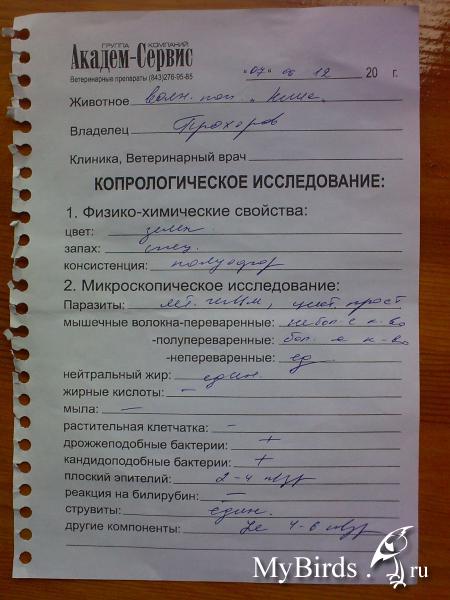 ГРУППА КОМПАНИЙ
Академ-Сервис
Ветеринарные препараты (843)276-95-85
"07" 06 12 20 г.
Животное волн. поп. "Кеша"
Владелец Прохоров
Клиника, Ветеринарный врач
КОПРОЛОГИЧЕСКОЕ ИССЛЕДОВАНИЕ:
1. Физико-химические свойства:
цвет: зелен
запах: спец.
консистенция: полуоформ
2. Микроскопическое исследование:
Паразиты: цист прост
мышечные волокна-переваренные: небол-е к-во
-полупереваренные: бол-е к-во
-непереваренные: ед
нейтральный жир: един.
жирные кислоты: –
мыла: –
растительная клетчатка: –
дрожжеподобные бактерии: +
кандидоподобные бактерии: +
плоский эпителий: 2-4 пзр
реакция на билирубин: –
струвиты: един.
другие компоненты: Le 4-6 пзр
MyBirds.ru